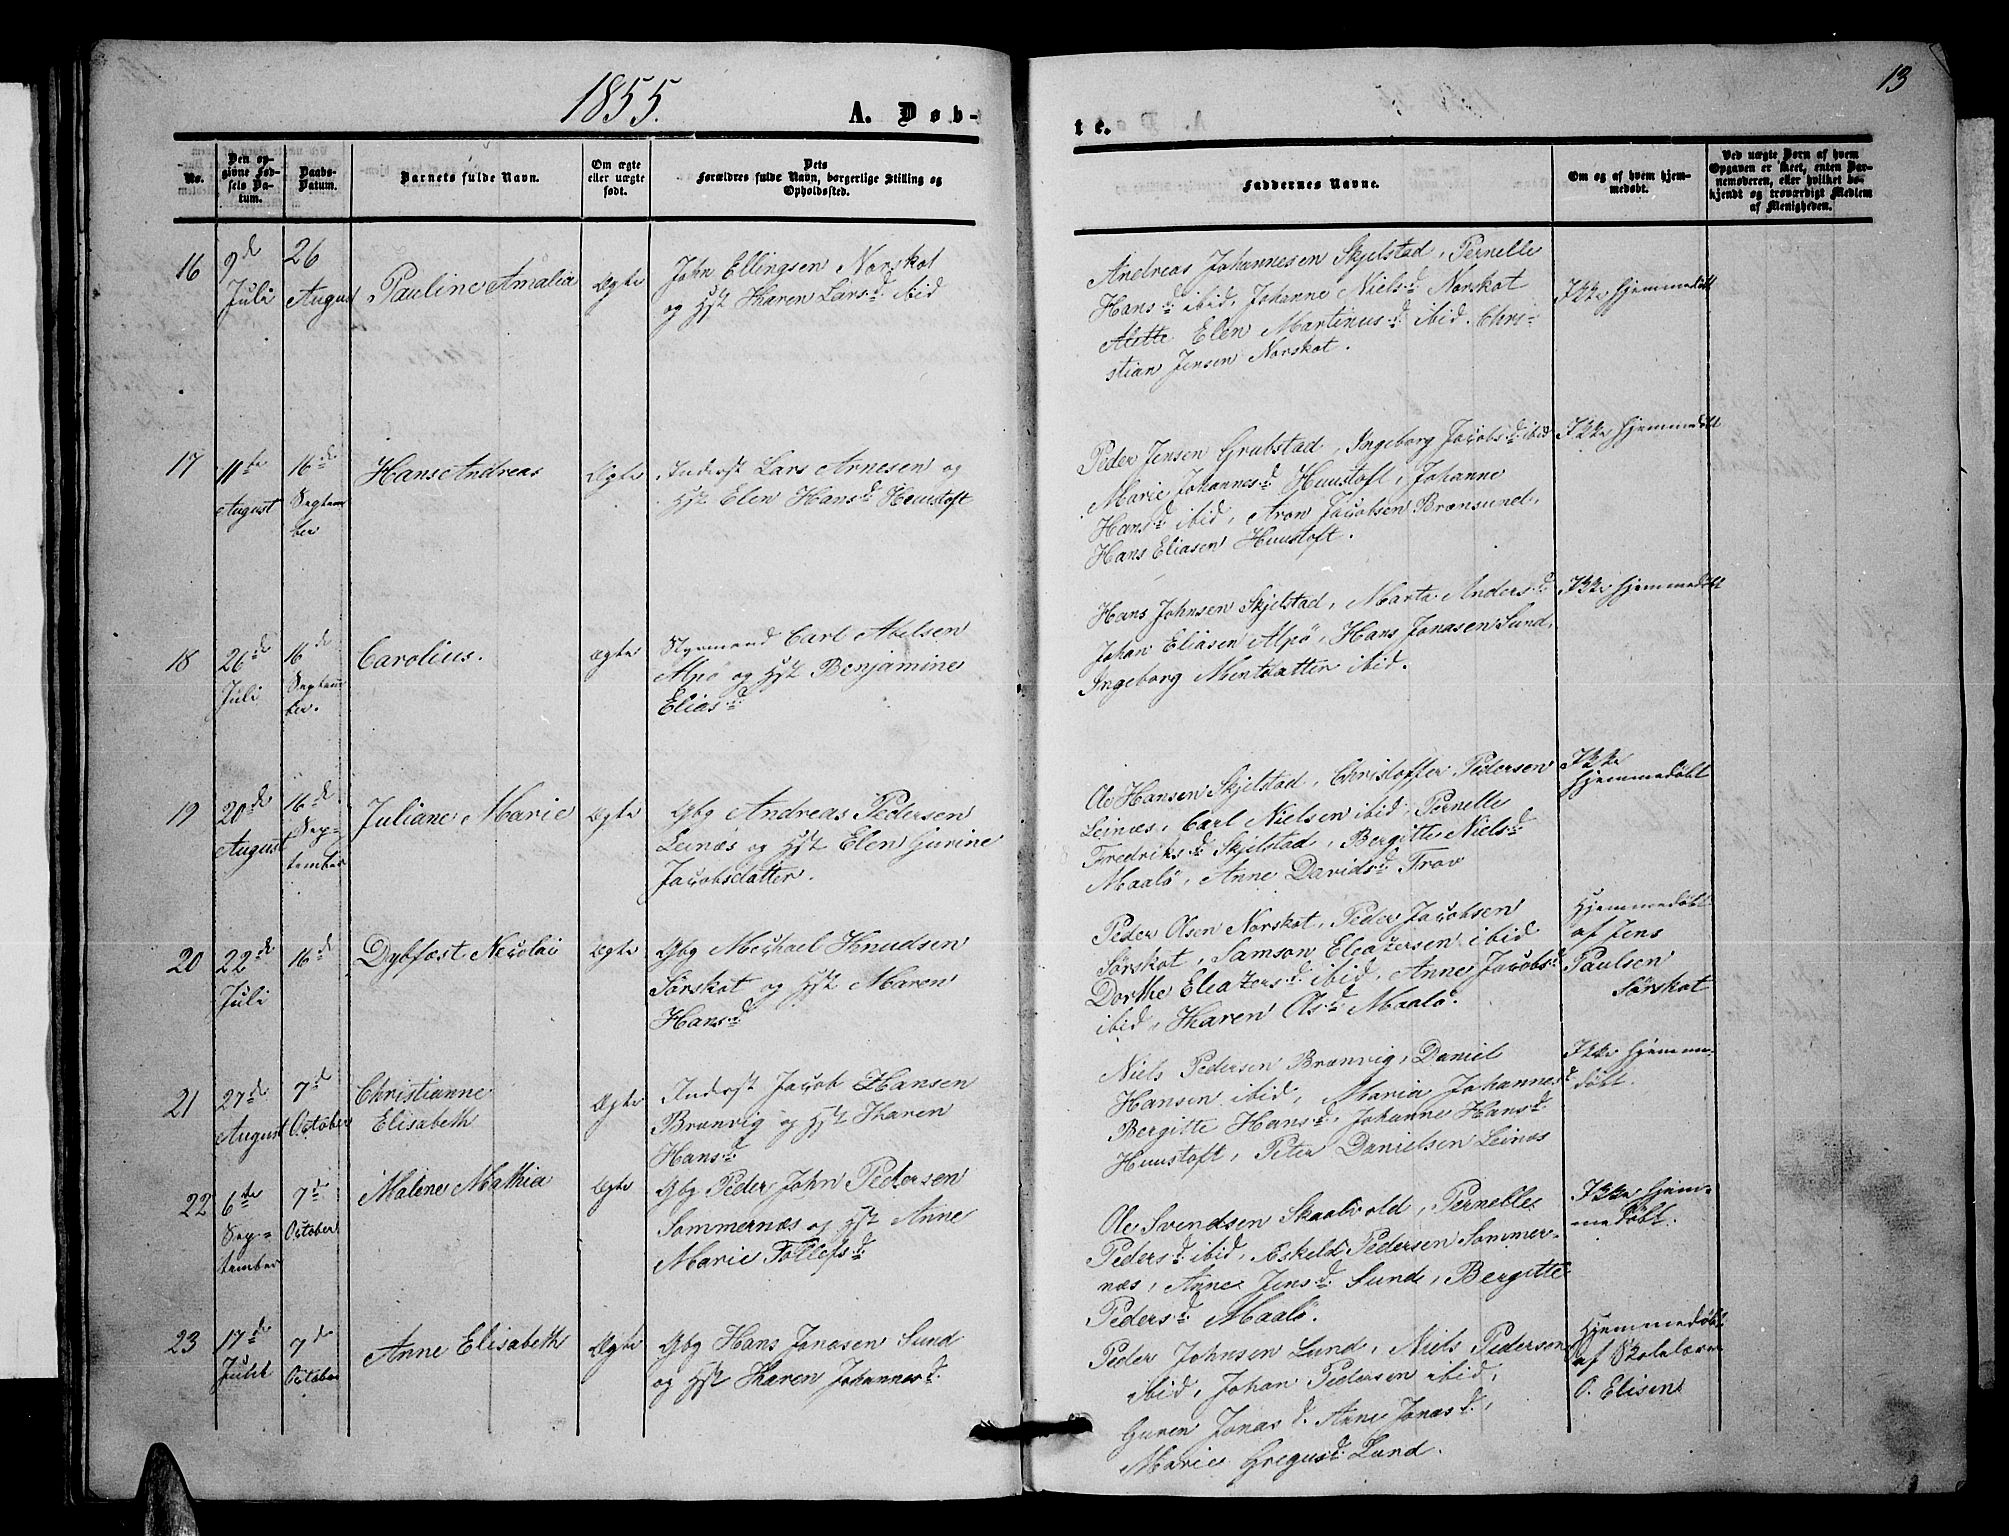 1855.
A. Døb-
te.
13
No.
Den op-
givne Fød-
sels Da-
tum.
Daabs-
Datum.
Barnets fulde Navn.
Om ægte
eller uægte
født.
Dets
Forældres fulde Navn, borgerlige Stilling og
Opholdssted.
Faddernes Navne.
Om og af hvem hjem-
medøbt.
Ved uægte Børn af hvem
Opgaven er skeet, enten Bar-
nemoderen, eller hvilket be-
kjendt og troværdigt Medlem
af Menigheden.
16
9de
Juli
26
August
Pauline Amalia
Ægte
John Ellingsen Norskot
og Hst Karen Larsd. ibid
Andreas Johannesen Skjelstad, Pernelle
Hansd. ibid, Johanne Nielsd. Norskot
Alette Elen Martinusd. ibid. Chri-
stian Jensen Norskot.
Ikke hjemmedøbt
17
11te
August
16de
Septem
ber
Hans Andreas
Ægte
Inderst Lars Arnesen og
Hst Elen Hansd. Huustoft
Peder Jensen Grubstad, Ingeborg Jacobsd. ibid
Marie Johannesd. Huustoft, Johanne
Hansd. ibid, Aron Jacobsen Brænsund,
Hans Eliasen Huustoft.
Ikke hjemmedøbt
18
26de
Juli
16de
Septem
ber.
Carolius.
Ægte
Styrmand Carl Abelsen
Alpö og Hst Benjamine
Eliasd.
Hans Johnsen Skjelstad, Marta Andersd.
Johan Eliasen Alpö, Hans Jonasen Sund,
Ingeborg Mentsdatter ibid.
Ikke hjemmedøbt
19
20de
August
16de
Sep-
tember
Juliane Marie
Ægte
Gbg Andreas Pedersen
Leinæs og Hst Elen Gurine
Jacobsdatter.
Ole Hansen Skjelstad, Christoffer Pedersen
Leinæs, Carl Nielsen ibid, Pernelle
Fredriksd. Skjelstad, Bergitte Nielsd.
Maalö, Anne Davidsd. Trov
Ikke
hjemmedøbt
20
22de
Juli
16de
Dybfæst Nicolai
Ægte
Gbg Michael Knudsen
Sørskot og Hst Maren
Hansd.
Peder Olsen Norskot, Peder Jacobsen
Sørskot, Samson Eleazersen ibid
Dorthe Eleazersd. ibid, Anne Jacobsd.
ibid, Karen Olsd. Maalö.
Hjemmedøbt
af Jens
Paulsen
Sørskot
21
27de
August
7de
October
Christianne
Elisabeth
Ægte
Inderst Jacob Hansen
Brænvig og Hst Karen
Hansd.
Niels Pedersen Brænvig, Daniel
Hansen ibid, Maria Johannesd.
Bergitte Hansd., Johanne Hansd.
Huustoft, Peter Danielsen Leinæs
Ikke hjemme-
døbt.
22
6te
Sep-
tember
7de
October
Malene Mathia
Ægte
Gbg Peder John Pedersen
Sommernæs og Hst Anne
Marie Tollefsd.
Ole Svendsen Skaalvold, Pernelle
Pedersd. ibid, Eskeld Pedersen Sommer-
næs, Anne Jensd. Sund, Bergitte
Pedersd. Maalö.
Ikke hjem-
medøbt.
23
17de
Juli
7de
October
Anne Elisabeth
Ægte
Gbg Hans Jonasen Sund
og Hst Karen Johannesd.
Peder Johnsen Lund, Niels Pedersen
ibid, Johan Pedersen ibid,
Guren Jonasd. Anne Jonasd.,
Marie Gregusd. Lund.
Hjemmedøbt
af Skolelærer
O. Elisen